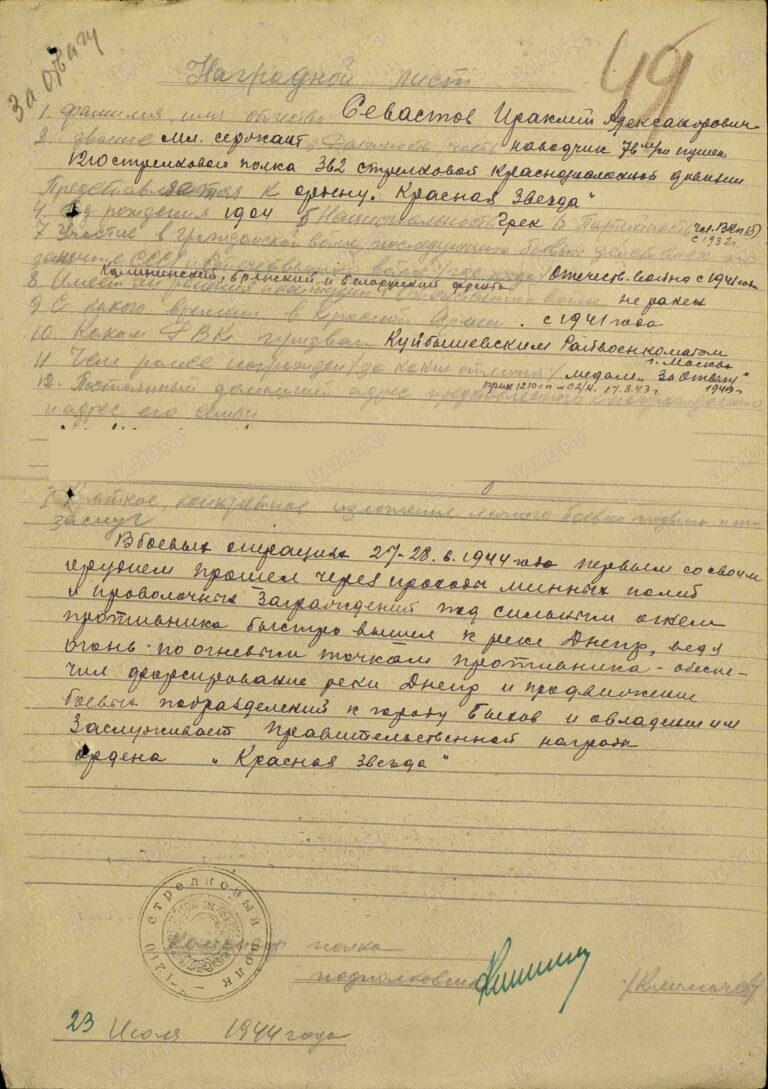 За отвагу
49
Наградной лист
1. Фамилия, имя отчество Севастов Ираклий Александрович
2. Звание Мл. сержант 3 Должность, часть наводчик 76 м/м пушек
1210 стрелкового полка 362 стрелковой краснознаменной дивизии
Представляется к ордену „Красная Звезда"
4. Год рождения 1904 5 Национальность Грек 6 Партийность чл. ВКП(б)
с 1932 г.
7. Участие в гражданской войне, последующих боевых действиях по
защите СССР и отечественной войне (где, когда) Отечеств. война с 1941 года
Калининский, Брянский и Белорусский фронта
8. Имеет ли ранения и контузии в отечественной войне не ранен
9 С какого времени в Красной Армии. с 1941 года
10. Каким РВК призван Куйбышевским Райвоенкоматом
г. Москва
11 Чем ранее награжден (за какие отличия) медаль „За Отвагу"
прик 1210 сп 02/н. 17.8.43 г. 1943 г
12. Постоянный домашний адрес представляемого к награждению и
адрес его семьи
I Краткое, конкретное изложение личного боевого подвига или
заслуг
В боевых операциях 27-28.6.1944 года первым со своим
орудием прошел через проходы минных полей
и проволочных заграждений под сильным огнем
противника быстро вышел к реке Днепр, ведя
огонь по огневым точкам противника - обеспе-
чил форсирование реки Днепр и продвижение
боевых подразделений к городу Быхов и овладении им
Заслуживает Правительственной награды
ордена „Красная Звезда"
1210 стрелковый полк
Командир полка
подполковник
/Климачев/
23 Июля 1944 года
ЦАМО.РФ